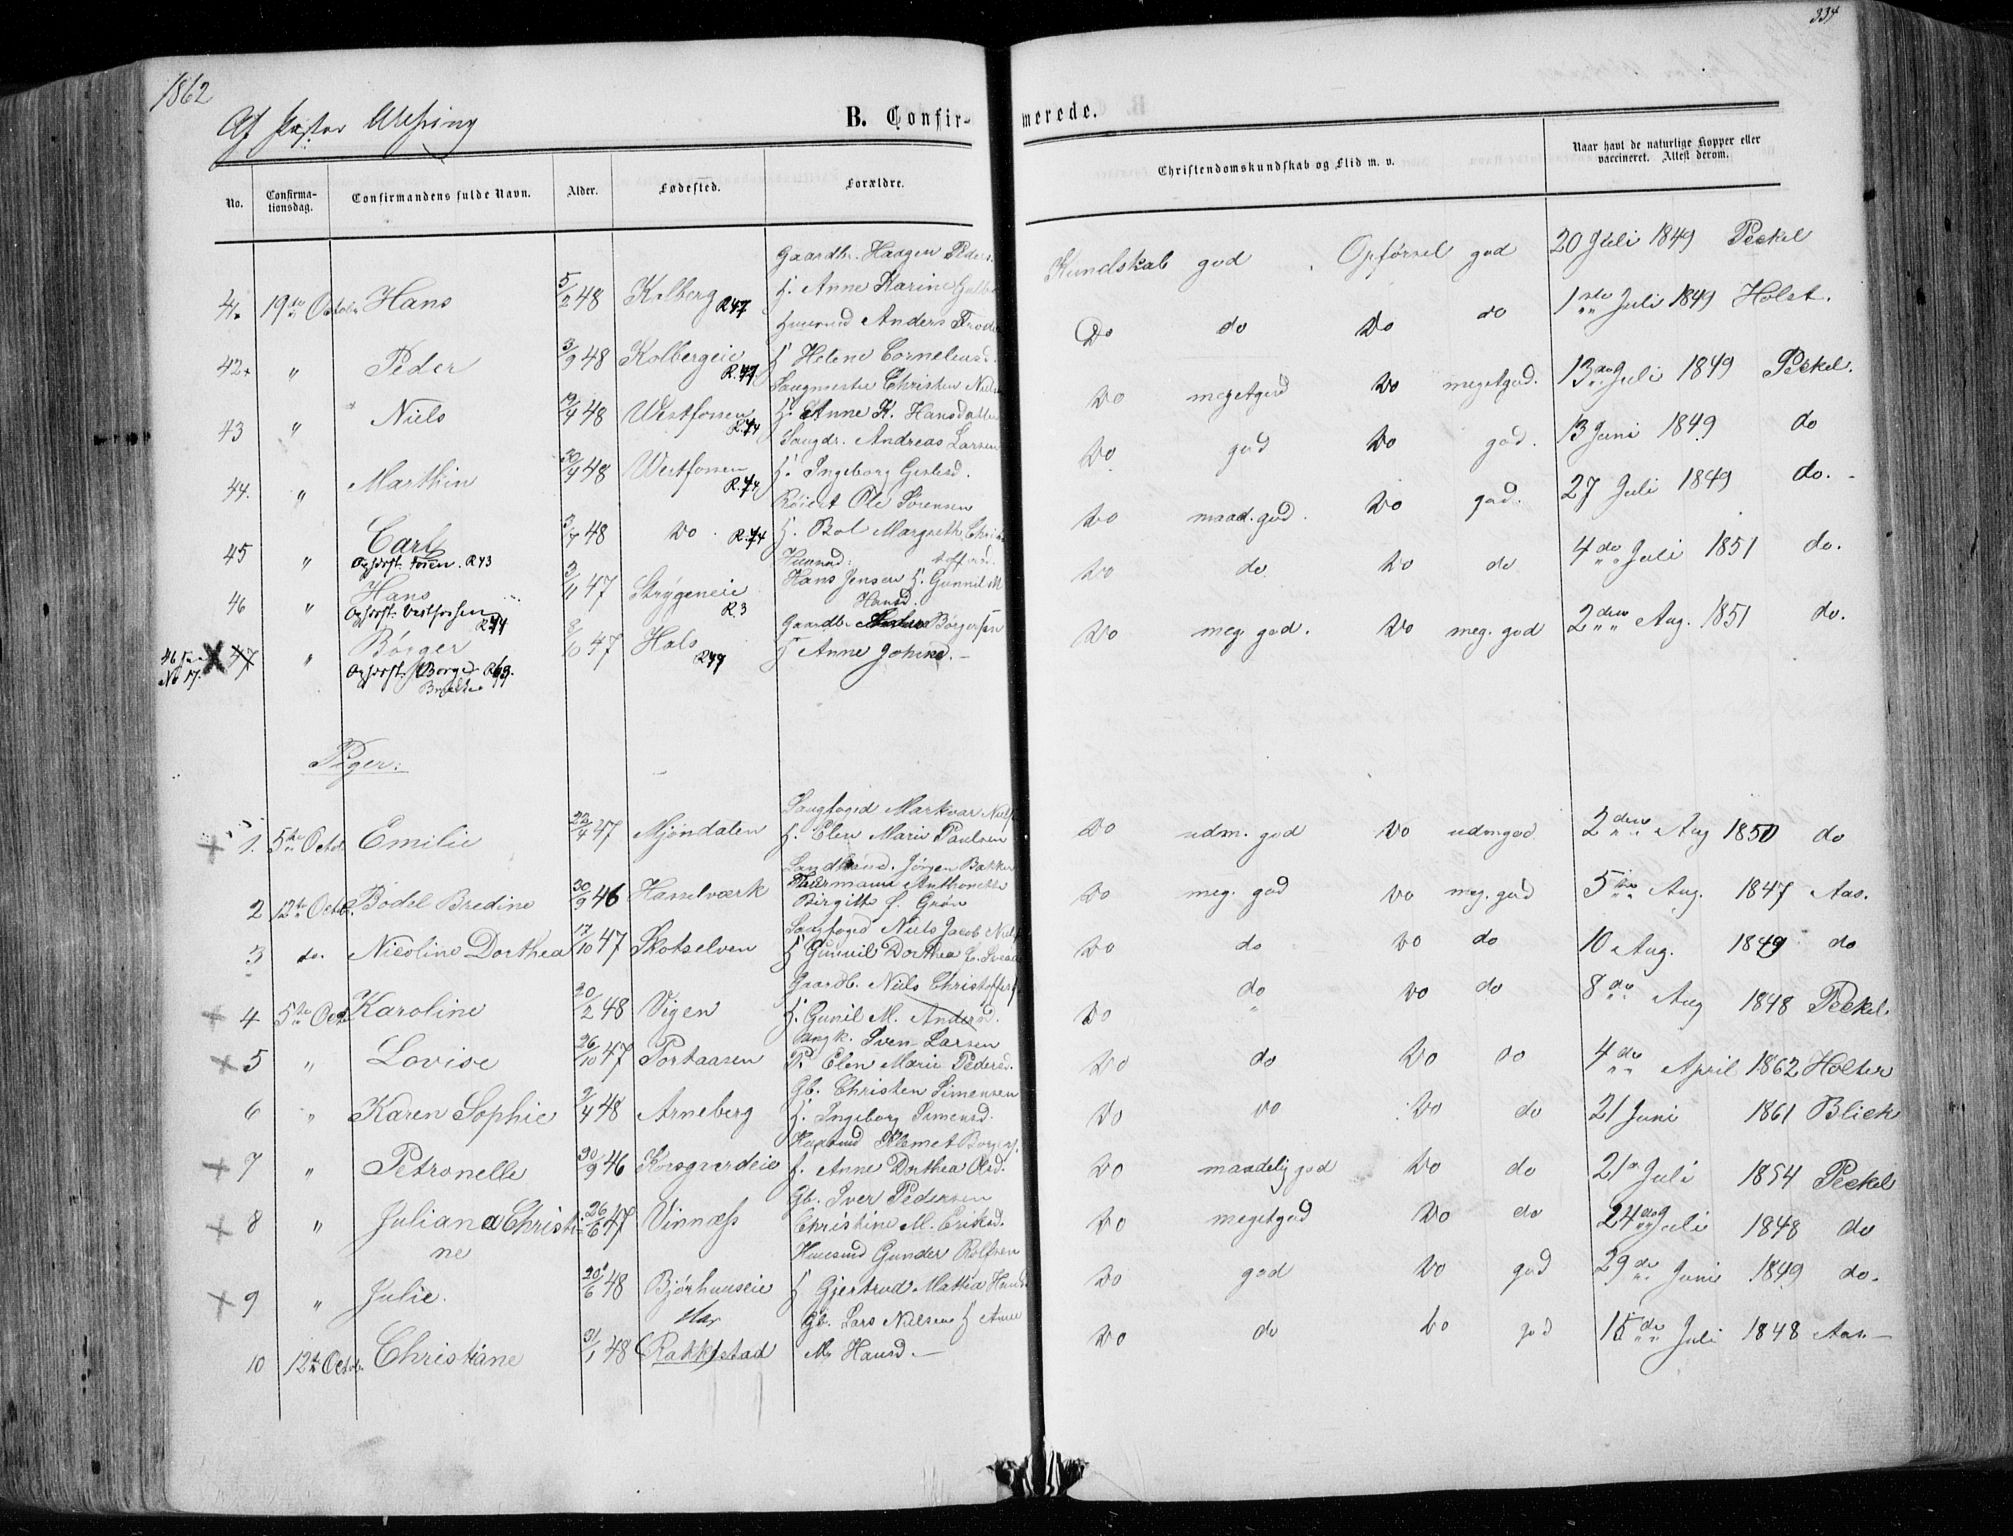 1862
334
Af Pastor
B. Confirmerede.
No.
Confirmationsdag.
Confirmandens fulde Navn.
Alder.
Fødested.
Forældre.
Christendomskundskab og Flid m. v.
Naar havt de naturlige Kopper eller vaccineret. Attest derom.
41 19de Octob. Hans 5/2 48 Kolberg R47 Gaardb. Haagen Peders. H. Anne Karine Kundskab god Opførsel god 20 Juli 1849 Peckel
42 " Peder 3/9 48 Kolbergeie R.47 Huusmd Anders H Helene Corneliusd. Do do Do do 1ste Juli 1849 Holst.
43 " Niels 48 Westfossen R.74 Saugmester Christen Niels H. Anne K. Hansdatter Do megetgod Do megetgod. 13de Juli 1849 Peckel.
44. " Marthin 48 Westfossen R.74 Saugdr. Andreas Larsen H. Ingeborg Do god Do god. 13 Juni 1849 do
45 " Carl Opforst. Foien. R43 3/7 48 Do. R.74 Røiert Ole Sørensen H. Bol Margrethe Christoffersd. Do maad. god. Do god. 27 Juli 1849 do.
46 " Hans Opforst. Vestfossen R74 3/11 47 Strygeneie R3 Huusmd. Hans Jensen H. Gunnil M Hansd. Do do Do do 4de Juli 1851 do.
46 No 17. 47 " Børger Opforst. 47 Hals R49 Gaardb. Børgersen H Anne Johnsd. Do meg. god. Do meg. god 2den Aug. 1851 do.
Piger:
1. 5te Octob. Emilie 22/4 47 Mjøndalen Saugfoged Markvar Niels H. Elen Marie Paulsen Do udm. god Do udm god 2den Aug 1850 do
2 12te Octob. Bodel Bredine 30/9 46 Hasselværk Landhand. Jørgen Bakke Anthonette Birgitte f. Grøn Do meg. god Do meg. god 5te Aug. 1847 Aas.
3 do. Nicoline Dorthea 17/10 47 Skotselven Saugfoged Niels Jacob Niels H Gunnil Dorthea Do do Do do 10 Aug. 1849 do
4 5te Oct Karoline 20/2 48 Vigen Gaardb. Niels Christoffers H. Gunil M. Andersd. Do do Do do 8de Aug 1848 Peckel.
5 " Lovise 26/10 47 Portaasen Sven Larsen P. Elen Marie Pedersd. Do do Do do 4de April 1862 Holter
6 " Karen Sophie 9/4 48 Arneberg Gb. Christen Simensen H. Ingeborg Simensd. Do Do Do do 21 Juni 1861 Blich
7 " Petronelle 30/9 46 Korsgaardeie Huusmd Klemet Borgers. f. Anne Dorthea Olsd. Do maadelig god Do do 21 Juli 1854 Peckel
8 " Juliana Christine 26/6 47 Vinnæss Gb. Iver Pedersen Christine M. Eriksd. Do megetgod Do do 24de Juli 1848 do
9 " Julie. 20/6 48 Bjørhuuseie Huusmd Gunder Rolfsen H Gjertrud Mathea Do god Do god 29de Juni 1849 do.
10 12te Octob. Christiane 31/1 48 Rakkestad Gb. Lars Nielsen H Anne M. Hansd. Do do Do god 15de Juli 1848 Aas.